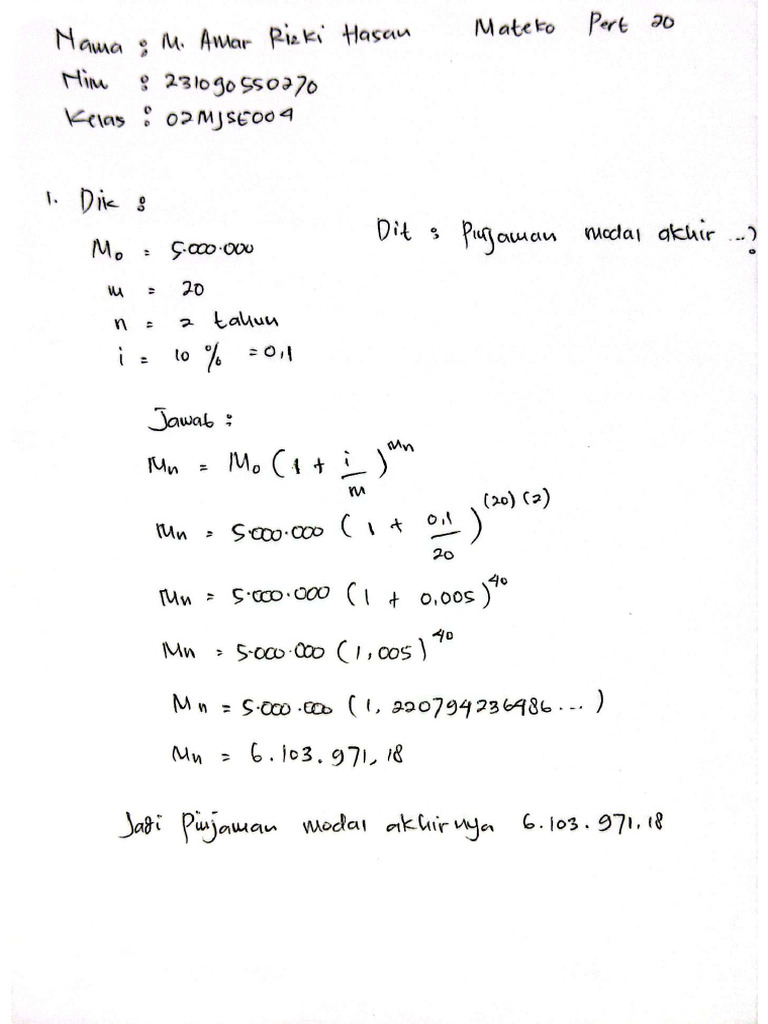 Nama : M. Amar Rizki Hasan Mateko Pert 20
Nim : 231090550270
Kelas : 02MJSE004
1. Dik :
Dit : Pinjaman modal akhir ...?
M₀ = 5.000.000
m = 20
n = 2 tahun
i = 10 % = 0,1
Jawab :
Mn = M₀ (1 + i/m)^mn
Mn = 5.000.000 (1 + 0,1/20)^(20)(2)
Mn = 5.000.000 (1 + 0,005)^40
Mn = 5.000.000 (1,005)^40
Mn = 5.000.000 (1,220794236486...)
Mn = 6.103.971,18
Jadi Pinjaman modal akhirnya 6.103.971,18